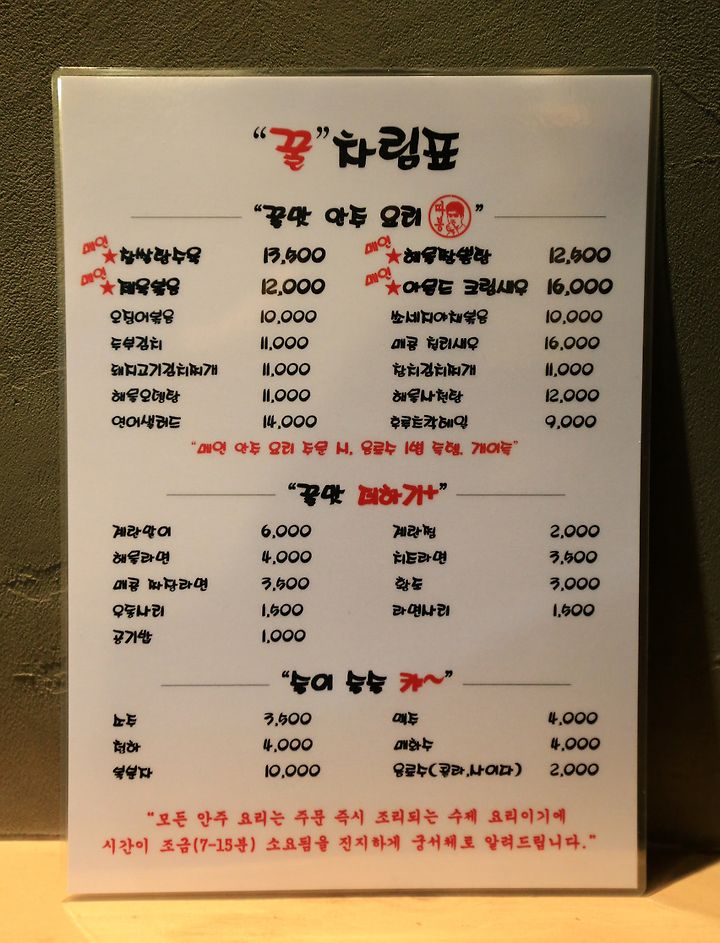 “꿀”차림표
“꿀맛 안주 요리”
메인 ★찹쌀탕수육 13,500 메인 ★해물짬뽕탕 12,500
메인 ★제육볶음 12,000 메인 ★아몬드 크림새우 16,000
오징어볶음 10,000 쏘세지야채볶음 10,000
두부김치 11,000 매콤 칠리새우 16,000
돼지고기김치찌개 11,000 참치김치찌개 11,000
해물오뎅탕 11,000 해물사천탕 12,000
연어샐러드 14,000 후르츠칵테일 9,000
“메인 안주 요리 주문 시, 음료수 1병 혜택. 개이득”
“꿀맛
계란말이 6,000 계란찜 2,000
해물라면 4,000 치즈라면 3,500
매콤 짜장라면 3,500 황도 3,000
우동사리 1,500 라면사리 1,500
공기밥 1,000
“술이 술술 캬~”
소주 3,500 맥주 4,000
청하 4,000 매화수 4,000
복분자 10,000 음료수(콜라,사이다) 2,000
“모든 안주 요리는 주문 즉시 조리되는 수제 요리이기에
시간이 조금(7-15분) 소요됨을 진지하게 궁서체로 알려드립니다.”